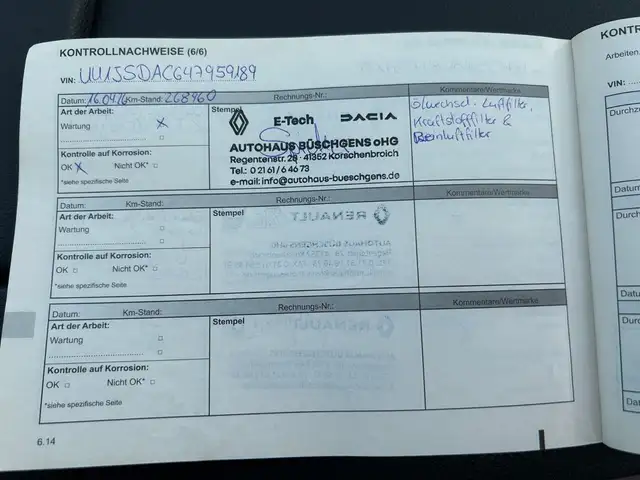 KONTROLLNACHWEISE (6/6)
VIN: UU1JSDAC647959189
Datum: 16.04.26 Km-Stand: 268460 Rechnungs-Nr.: Kommentare/Wertmarke
Art der Arbeit:
Wartung x
Kontrolle auf Korrosion:
OK x Nicht OK*
*siehe spezifische Seite
Stempel
E-Tech DACIA
AUTOHAUS BÜSCHGENS oHG
Regentenstr. 28 · 41352 Korschenbroich
Tel.: 0 21 61 / 6 46 73
e-mail: info@autohaus-bueschgens.de
Ölwechsel, Luftfilter,
Kraftstofffilter &
Reinluftfilter
Datum: Km-Stand: Rechnungs-Nr.: Kommentare/Wertmarke
Art der Arbeit:
Wartung
Kontrolle auf Korrosion:
OK Nicht OK*
*siehe spezifische Seite
Stempel
RENAULT
Datum: Km-Stand: Rechnungs-Nr.: Kommentare/Wertmarke
Art der Arbeit:
Wartung
Kontrolle auf Korrosion:
OK Nicht OK*
*siehe spezifische Seite
Stempel
RENAULT
6.14
KONT
Arbeiten
VIN:
Durchz
Datum
Durch
Datu
Durc
Dat